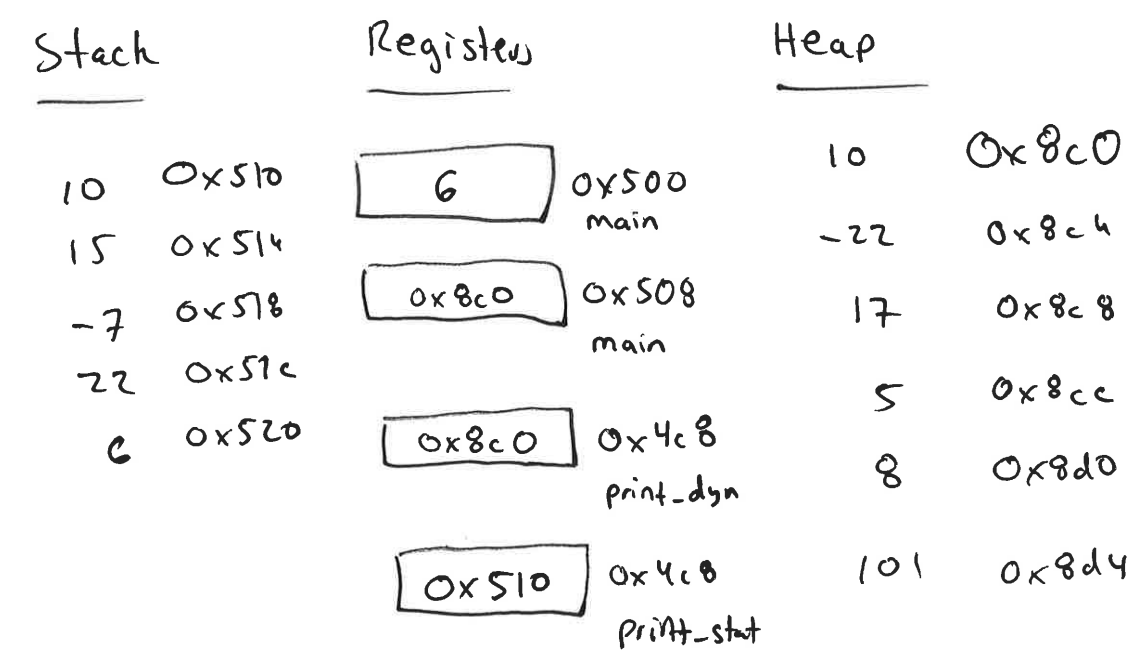 Stack
10 0x510
15 0x514
-7 0x518
22 0x51c
6 0x520
Registers
6 0x500
main
0x8c0 0x508
main
0x8c0 0x4c8
print_dyn
0x510 0x4c8
print_stat
Heap
10 0x8c0
-22 0x8c4
17 0x8c8
5 0x8cc
8 0x8d0
101 0x8d4